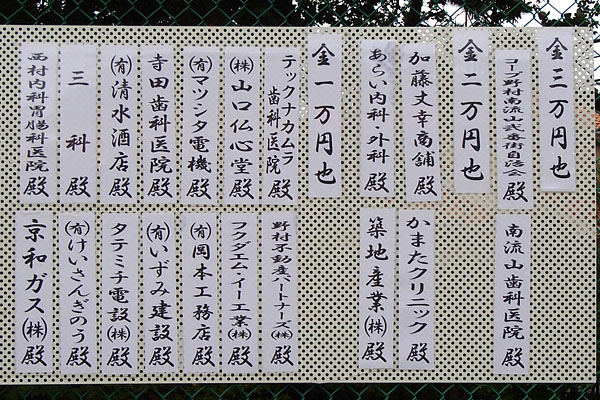 金三万円也
コープ野村南流山弐番街自治会 殿
南流山歯科医院 殿
金二万円也
加藤丈幸商舗 殿
かまたクリニック 殿
あらい内科・外科 殿
築地産業㈱ 殿
金一万円也
テックナカムラ歯科医院 殿
野村不動産パートナーズ㈱ 殿
㈱山口仏心堂 殿
フクダエム・イー工業㈱ 殿
㈲マツシタ電機 殿
㈲岡本工務店 殿
寺田歯科医院 殿
㈲いずみ建設 殿
㈲清水酒店 殿
タテミチ電設㈱ 殿
三科 殿
㈲けいさんぎのう 殿
西村内科胃腸科医院 殿
京和ガス㈱ 殿